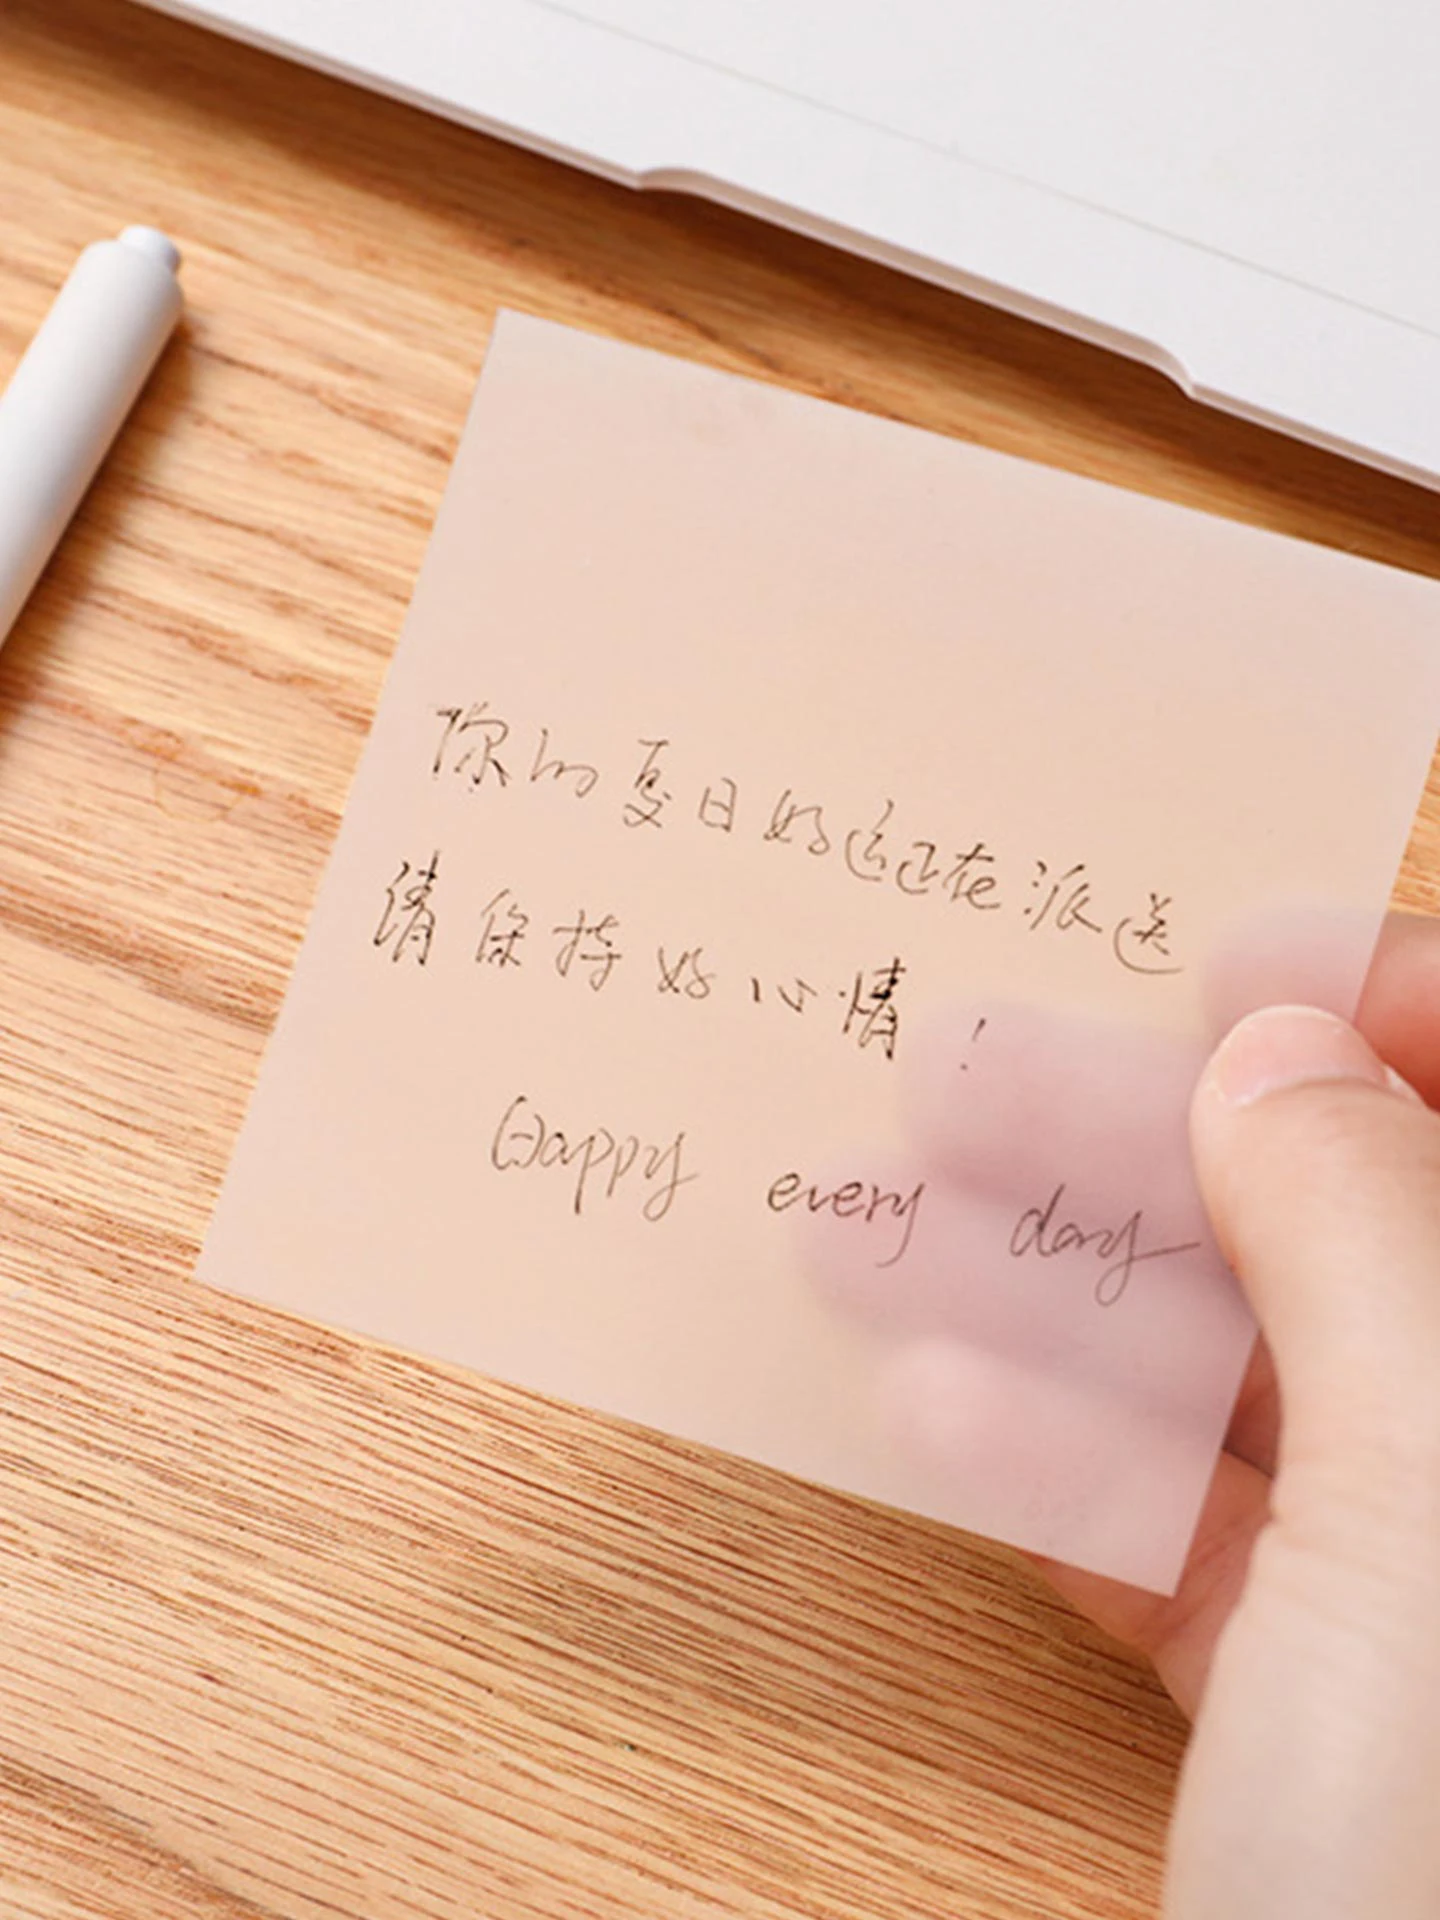 你的夏日好运正在派送
请保持好心情!
Happy every day